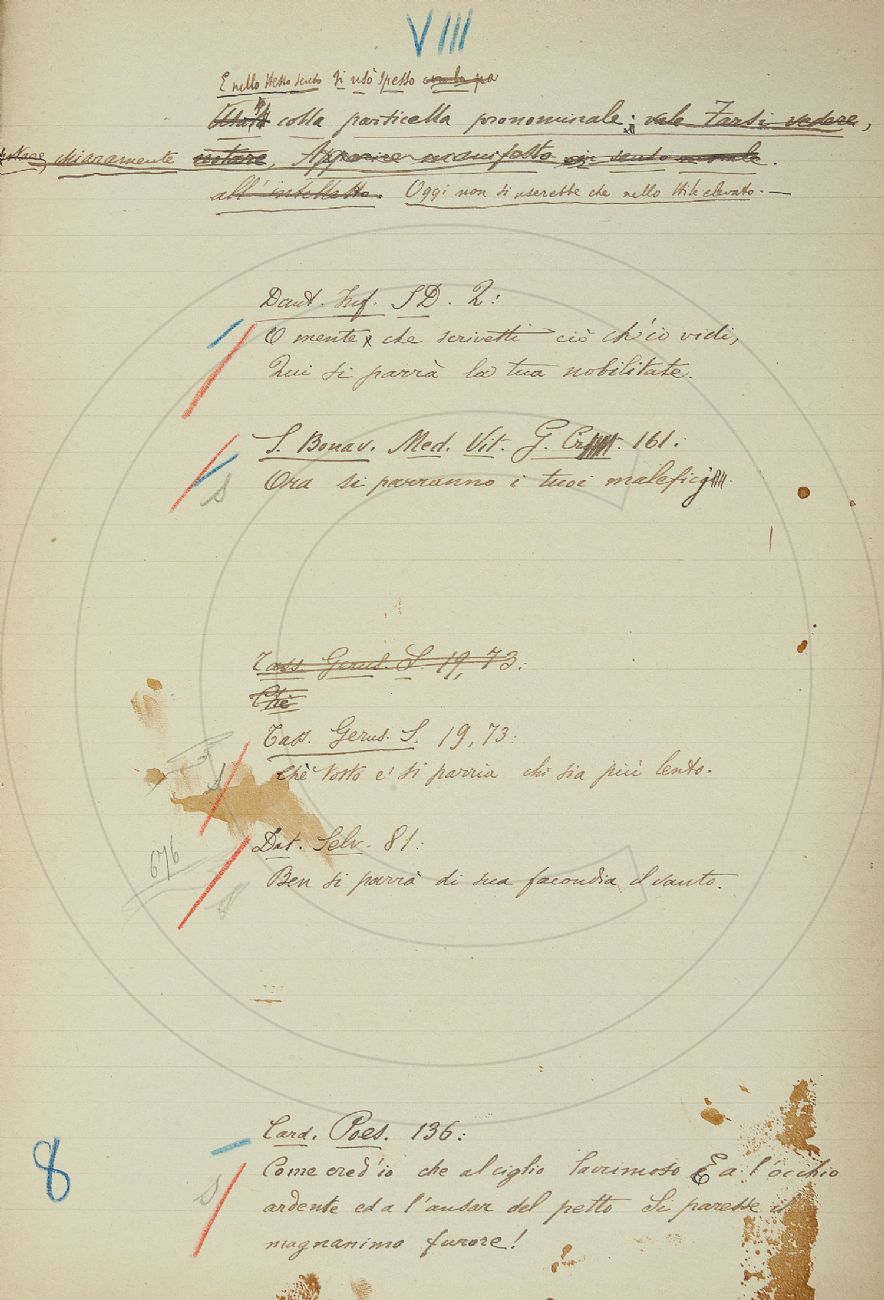 VIII
E nello stesso senso si usò spesso
colla particella pronominale; vale Farsi vedere,
chiaramente notare. Apparire manifesto in senso morale.
all'intelletto. Oggi non si userebbe che nello stile elevato. —
Dant. Inf. SD. 2:
O mente, che scrivetti ciò ch'io vidi,
Qui si parrà la tua nobilitate.
S. Bonav. Med. Vit. G. Cr. 161:
Ora si parranno i tuoi maleficj
Tass. Gerus. S. 19, 73:
Chè
Tass. Gerus. S. 19, 73:
Chè tosto e' si parria chi sia più lento.
676
Dat. Selv. 81:
Ben si parrà di sua facondia il vanto.
8
Card. Poes. 136:
Come cred'io che al ciglio lacrimoso E a l'occhio
ardente ed a l'ansar del petto Si paresse il
magnanimo furore!